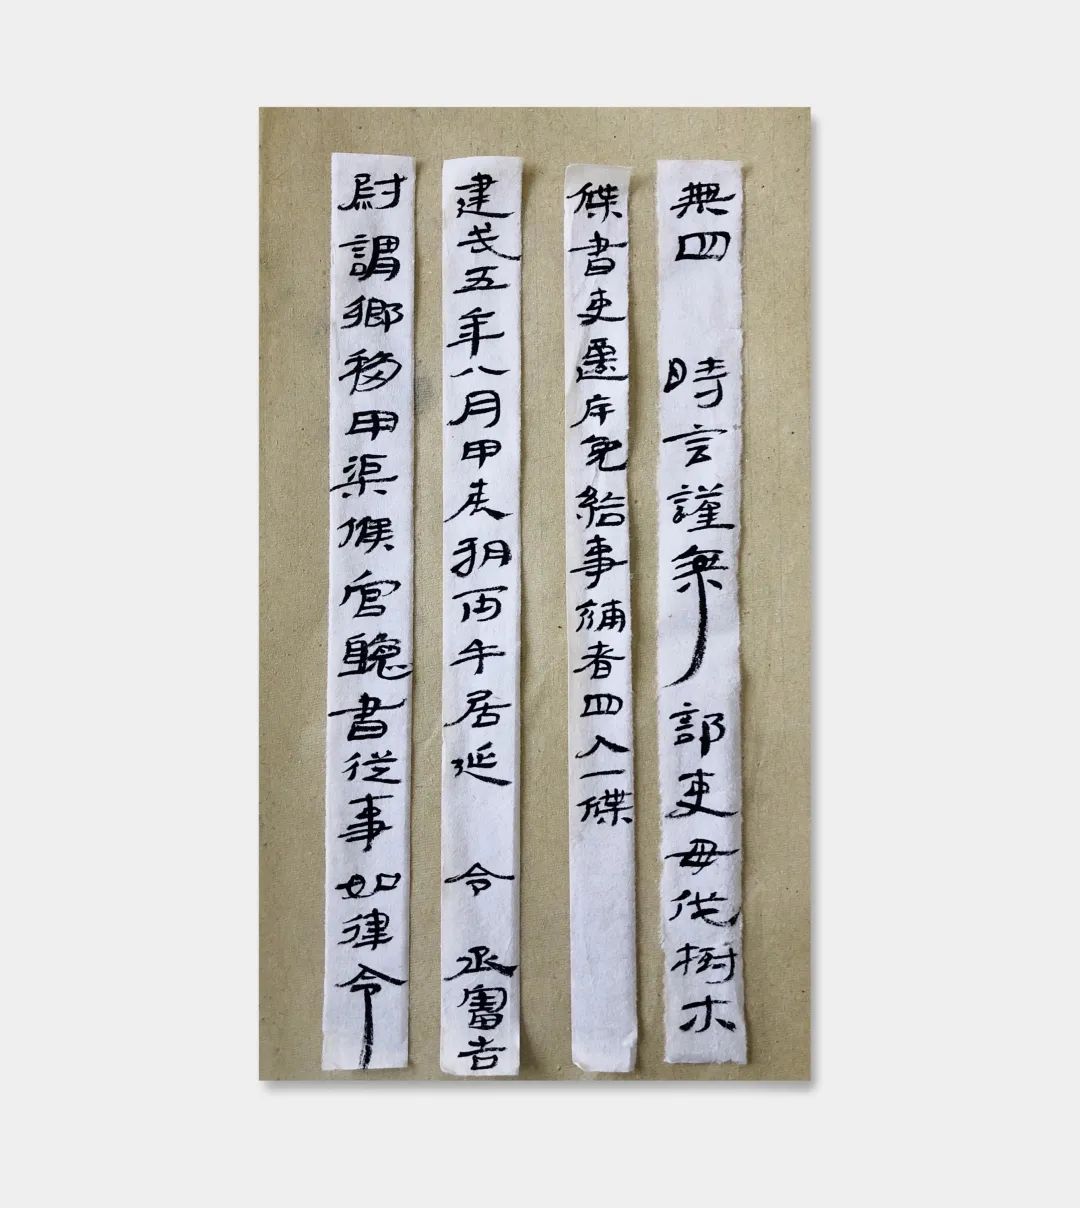 無四 時言謹案 部吏毋伐樹木
牒書吏遷斥免給事補者四人一牒
建武五年八月甲辰朔丙午居延 令 丞審告
尉謂鄉移甲渠候官聽書從事如律令